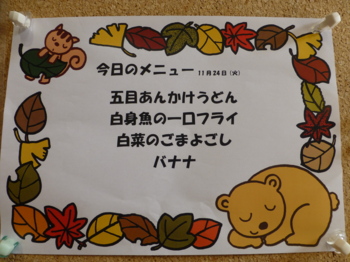 今日のメニュー 11月24日（火）
五目あんかけうどん
白身魚の一口フライ
白菜のごまよごし
バナナ